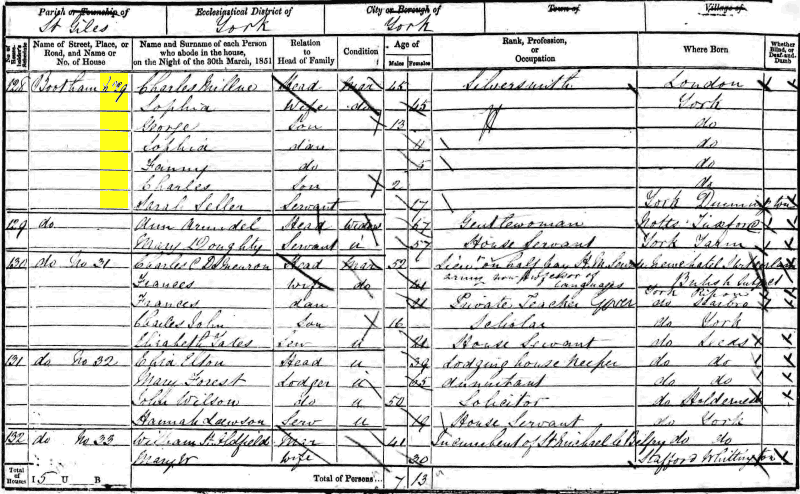 Parish or Township of St Giles
Ecclesiastical District of York
City or Borough of York
Town of
Village of
No. of Householder's Schedule
Name of Street, Place, or Road, and Name or No. of House
Name and Surname of each Person who abode in the house, on the Night of the 30th March, 1851
Relation to Head of Family
Condition
Age of Males Females
Rank, Profession, or Occupation
Where Born
Whether Blind, or Deaf-and-Dumb
128 Bootham Charles Millne Head Mar 45 Silversmith London
Sophia Wife do 45 York
George Son 13 do
Sophia dau do
Fanny do 5 do
Charles Son 2 do
Sarah Seller Servant 17 York
129 do Ann Arundel Head Widow 67 Gentlewoman Notts Tuxford
Mary Doughty Servant u 57 House Servant York
130 do No 31 Charles C Head Mar 52 on half pay
army now Professor of Languages British Subject
Frances Wife do York Ripon
Frances dau 21 Private Teacher do
Charles John Son 16 Scholar do York
Elizabeth Yates Serv u 21 House Servant do Leeds
131 do No 32 Eliza Elton Head u 39 Lodging house Keeper do do
Mary Forest Lodger u 65 Annuitant do do
John Wilson do u 50 Solicitor do Holderness
Hannah Lawson Serv u 19 House Servant do York
132 do No 33 William H Mar 41 Incumbent of St Michael le Belfry do do
Mary W Wife 30 Stafford Whittington
Total of Houses I 5 U B
Total of Persons... 7 13